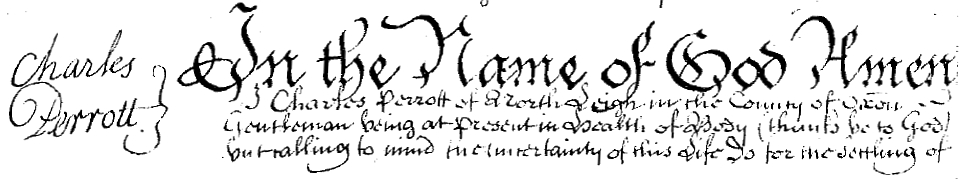 Charles
Perrott
In the Name of God Amen
I Charles Perrott of North Leigh in the County of Oxon
Gentleman being at present in Health of Body (thanks be to God)
but calling to mind the uncertainty of this Life Do for the settling of